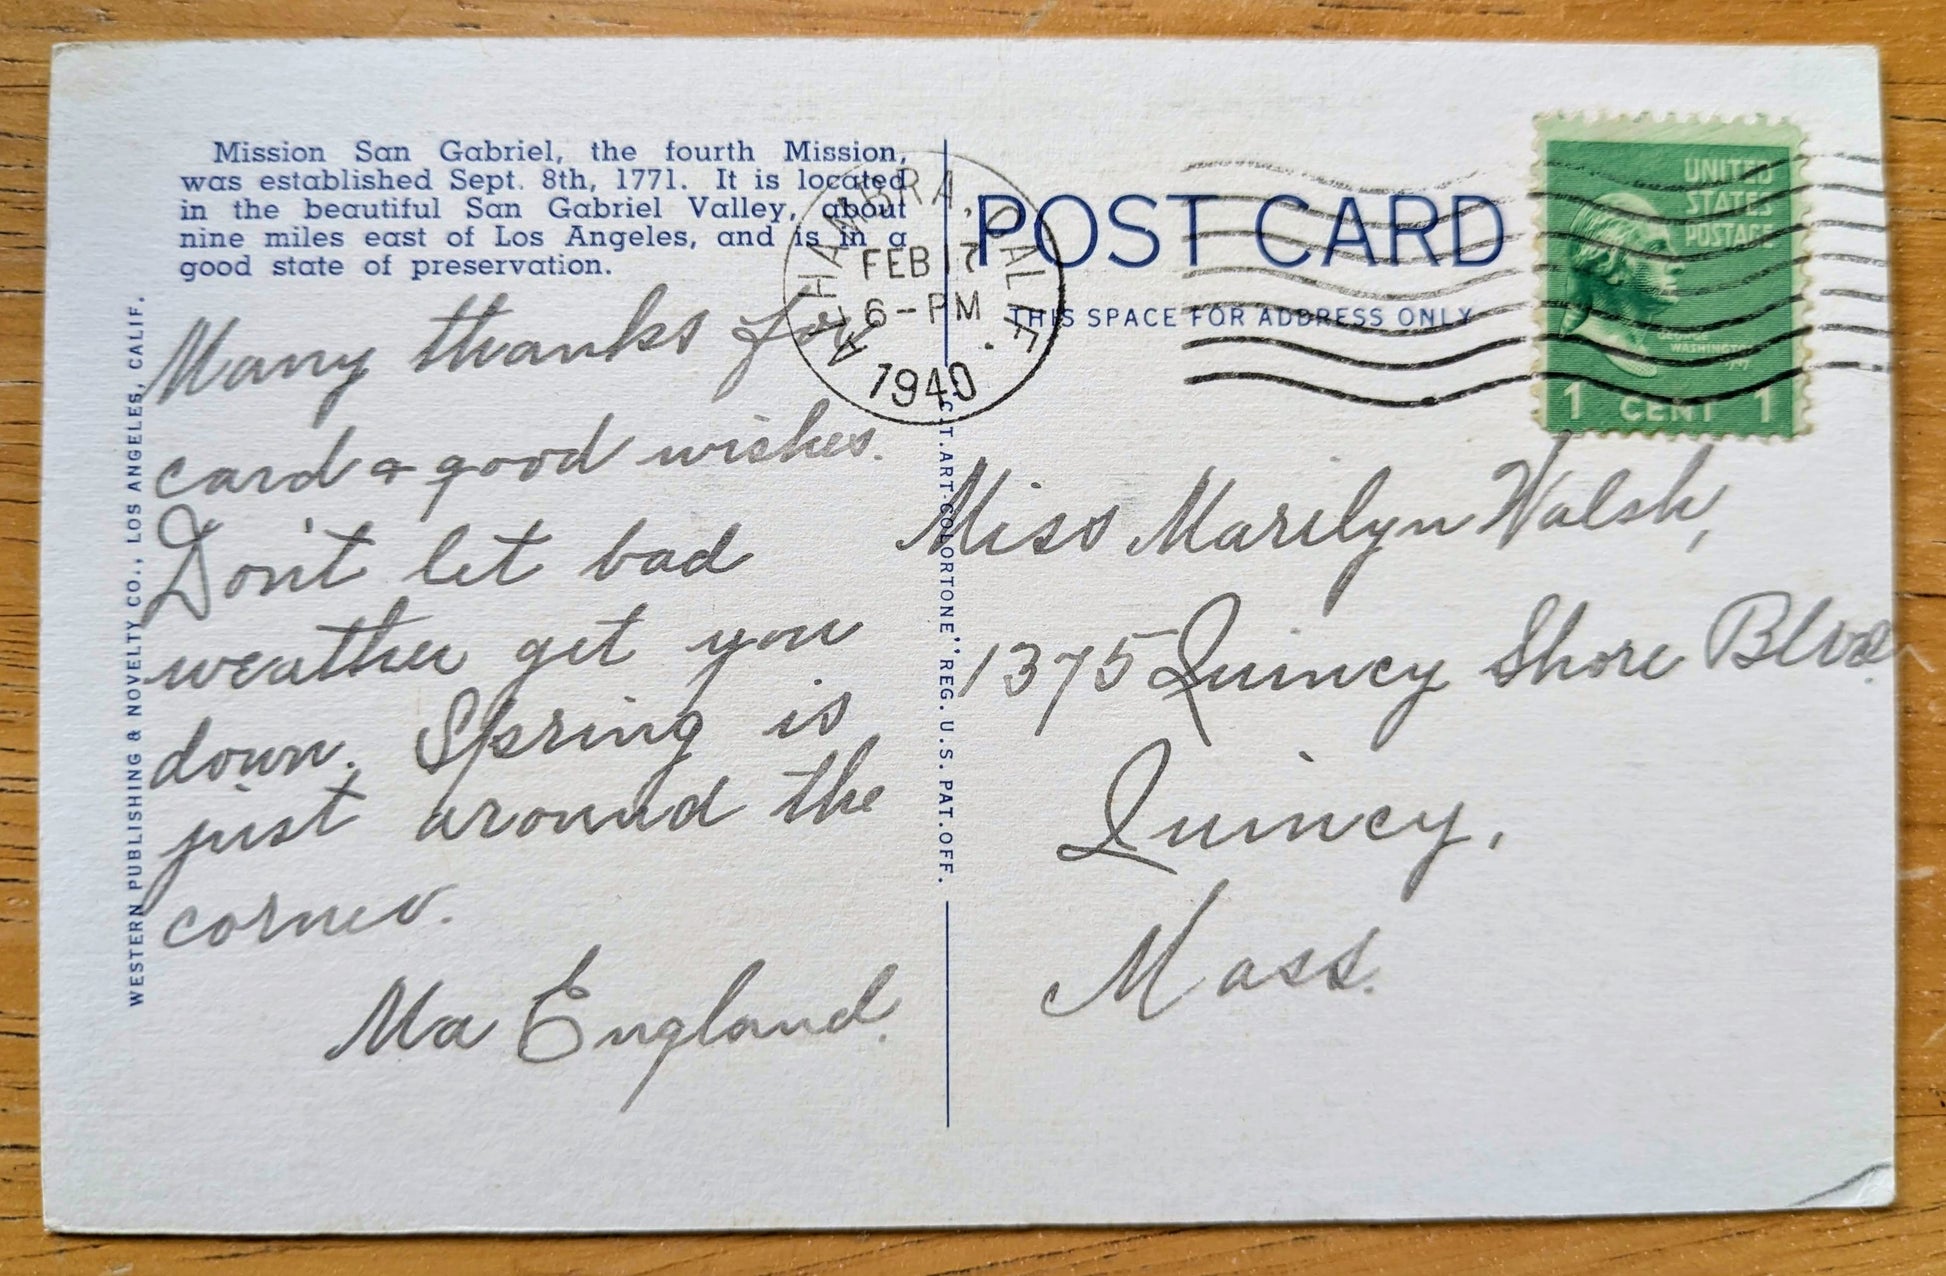 Mission San Gabriel, the fourth Mission,
was established Sept. 8th, 1771. It is located
in the beautiful San Gabriel Valley, about
nine miles east of Los Angeles, and is in a
good state of preservation.
WESTERN PUBLISHING & NOVELTY CO., LOS ANGELES, CALIF.
Many thanks for
card & good wishes.
Don't let bad
weather get you
down. Spring is
just around the
corner.
Ma England.
ALHAMBRA, CALIF.
FEB 17
6-PM
1940
C.T. ART-COLORTONE" REG. U.S. PAT. OFF.
POST CARD
THIS SPACE FOR ADDRESS ONLY
UNITED
STATES
POSTAGE
GEORGE
WASHINGTON
1 CENT 1
Miss Marilyn Walsh,
1375 Quincy Shore Blvd.
Quincy,
Mass.